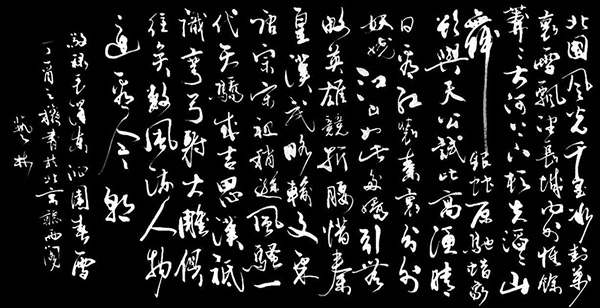 北國風光千里冰封萬
裏雪飄望長城内外惟餘
莽々大河上下頓失滔々山
舞銀蛇原馳蜡象
欲與天公試比高須晴
日看紅裝素裹分外
妖嬈江山如此多嬌引無
數英雄競折腰惜秦
皇漢武略輸文采
唐宗宋祖稍遜風騷一
代天驕成吉思漢祗
識彎弓射大雕俱
往矣數風流人物
還看今朝
敬録毛澤東沁園春雪
丁酉之秋書於北京西閣